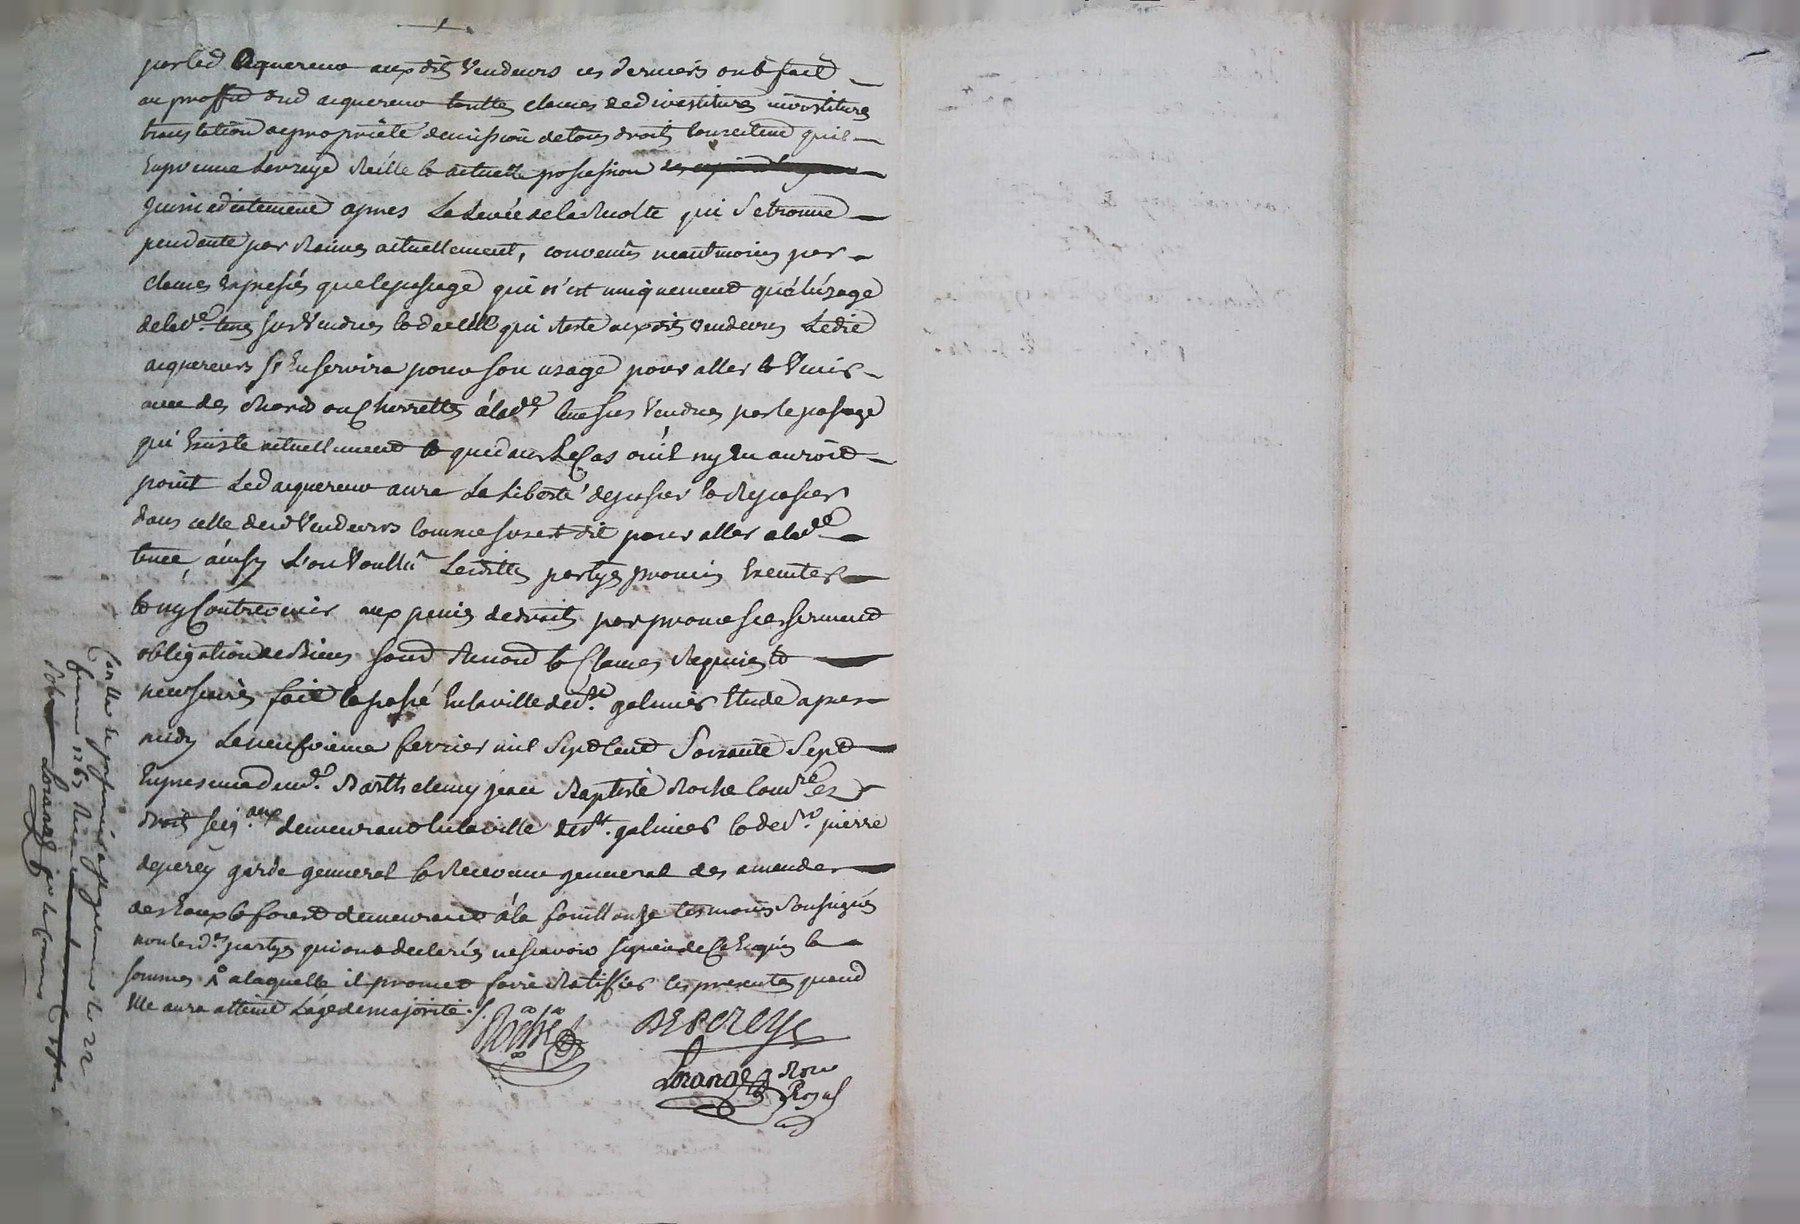 par led aquereur auxdits Vendeurs ces derniers ont fait
au proffid dud aquereur touttes clauses de divestitures investitures
translation de propriété demission de tous droits
En prenne Sevraye Réélle & actuelle possession
Jmmediatement apres La Levée de la Recolte qui Setrouve
pendante par Racines actuellement, convenus neantmoins par
clauses Expresses que le passage qui n'est uniquement qu'a l'usage
de lad.e terre sus Vendues & de celle qui Reste auxdits vendeurs Ledit
aquereurs s'En servira pour son usage pour aller & Venir
avec des Chard ou Charrettes a lad.e terre sus Vendues par le passage
qui Existe actuellement & que dans Le Cas ou il ny En auroit
point Led aquereur aura La Liberté de passer & Repasser
dans celle desd Vendeurs comme sus est dit pour aller a lad.e
terre ainsy L'ont Voullu Lesdittes partyes promis Executer
& ny Contrevenir aux peines de droits par promesses serment
obligation de Biens sous Renond & Clauses Requises &
necessaires fait & passé En la ville de St. galmier Etude apres
midy Le neufvieme fevrier mil Sept Cent Soixante Sept
En presence de m.e Barthelemy jean Baptiste Roche Com.re ez
droits seig.aux demeurant En la ville de St. galmier & de S.r pierre
deperey garde general & Receveur general des amandes
des Eaux & forest demeurant a la fouillouze temoins Soussignés
non lesd.es partyes qui ont declarés ne scavoir signer de Ce Enquis &
sommes a laquelle il promet faire Ratiffier les presentes quand
Elle aura atteint L'age de majorité ./.
Roche
DEPEREY
Lorange
Nore
Royal
Con.lle
le 22
1767
Lorange